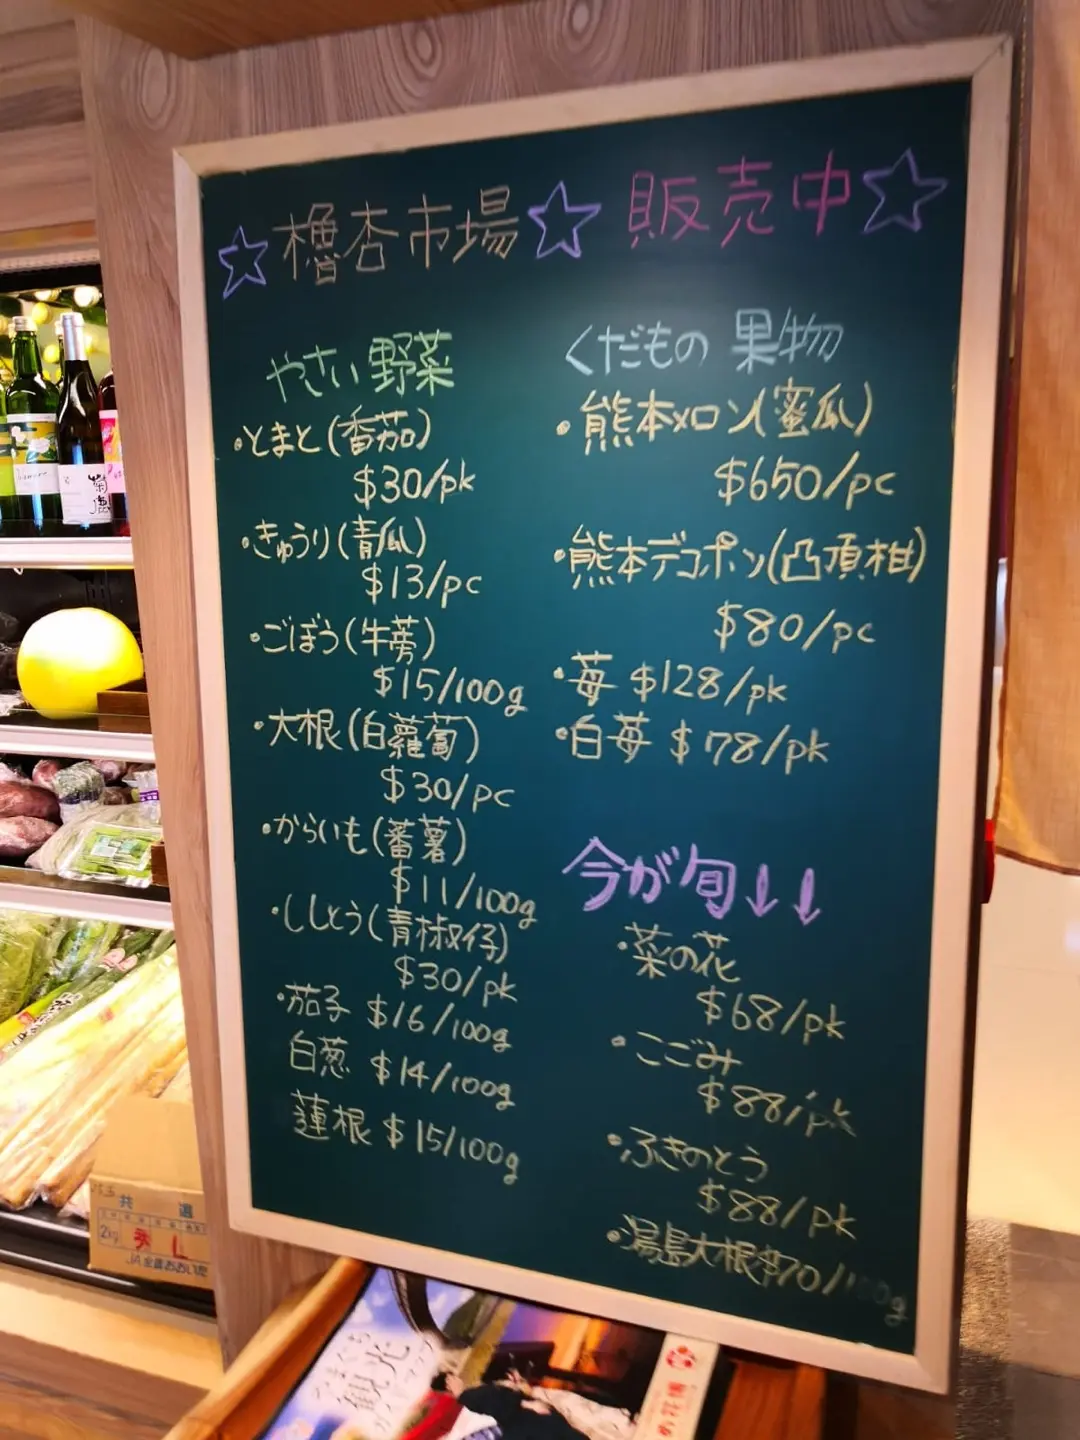 ☆櫓杏市場☆ 販売中☆
やさい 野菜
・とまと(番茄)
$30/pk
・きゅうり(青瓜)
$13/pc
・ごぼう(牛蒡)
$15/100g
・大根(白蘿蔔)
$30/pc
・からいも(蕃薯)
$11/100g
・ししとう(青椒仔)
$30/pk
・茄子 $16/100g
白葱 $14/100g
蓮根 $15/100g
くだもの 果物
・熊本メロン(蜜瓜)
$650/pc
・熊本デコポン(凸頂柑)
$80/pc
・苺 $128/pk
・白苺 $78/pk
今が旬↓↓
・菜の花
$68/pk
・こごみ
$88/pk
・ふきのとう
$88/pk
・湯島大根$70/100g
共選
2kg
秀 L
観光